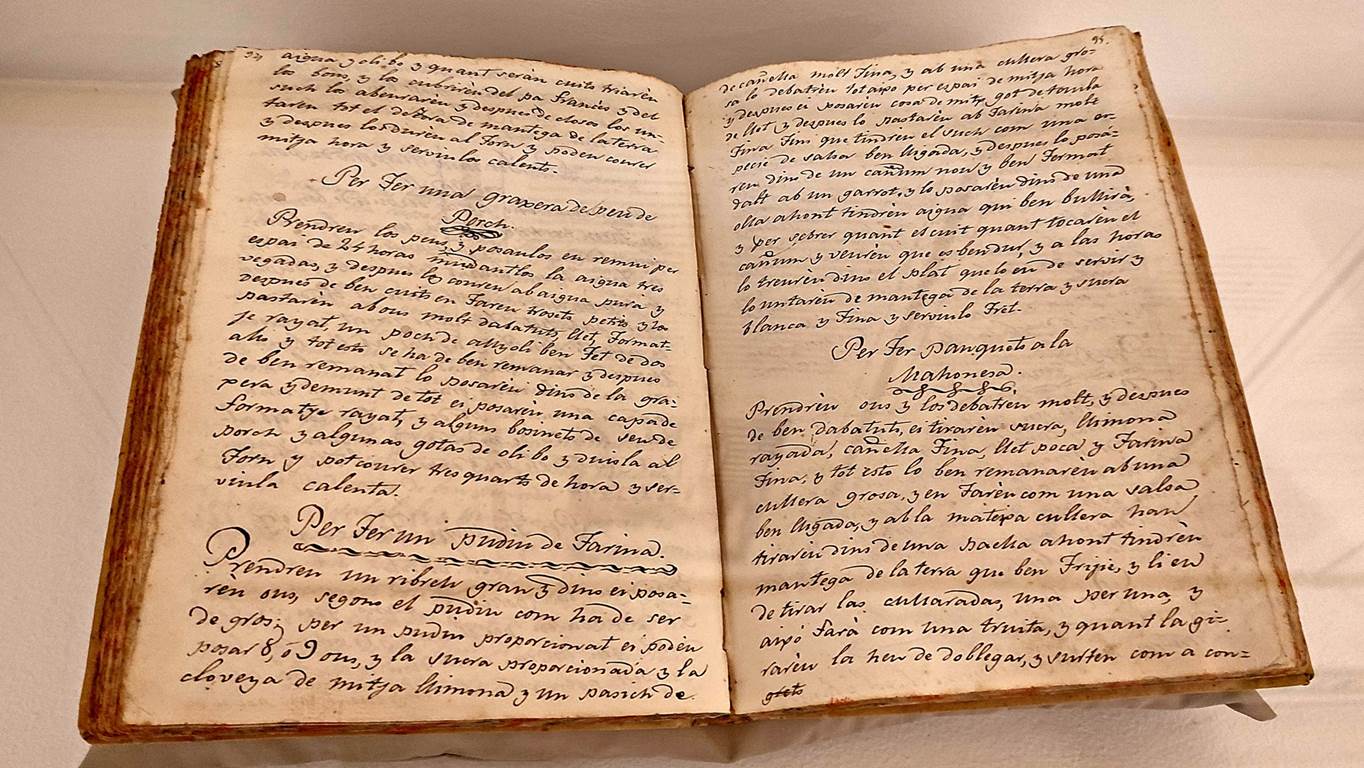 94
aigua y oli bo y quant seràn cuits triarèu
los bons, y los aubrirèu del pa francès y del
such los abeurarèu y despues de closos los un-
tarèu tot el defora de mantega de la terra
y despues los durèu al Forn y poden courer
mitja hora y serviulos calents.
Per Fer una graxera de peu de
Porch.
Prendreu los peus, y posaulos en remui per
espai de 24 horas mudantlos la aigua tres
vegadas, y despues los coureu ab aigua pura y
despues de ben cuits en Fareu trosets petits y los
pastarèu ab ous molt dabatuts, llet, Format-
je rayat, un poch de allyoli ben Fet de dos
alls y tot esto se ha de ben remanar y despues
de ben remanat lo posarèu dins de la gra-
xera y demunt de tot ei posareu una capa de
formatje rayat, y alguns bosinets de seu de
porch y algunas gotas de oli bo y duisla al
Forn y pot courer tres quarts de hora y ser-
viula calenta.
Per Fer un pudin de Farina.
Prendreu un ribrell gran y dins ei posa-
rèu ous, segons el pudin com ha de ser
de gros; per un pudin proporcionat ei podeu
posar 8, ó 9 ous, y la sucra proporcionada y la
cloveya de mitja llimona y un pasich de
95
de cañella molt Fina, y ab una cullera gro-
sa lo debatrèu tot axo per espai de mitja hora
y despues ei posarèu cosa de mitx got de taula
de llet y despues lo pastarèu ab Farina molt
Fina Fins que tindrèu el such com una es-
pecie de salsa ben lligada, y despues lo posa-
reu dins de un cañum nou y ben Fermat
dalt ab un garrot, y lo posarèu dins de una
olla ahont tindrèu aigua qui ben bullirà,
y per sebrer quant es cuit quant tocareu el
cañum y veureu que es ben dur, y a las horas
lo treureu dins el plat que lo eu de servir y
lo untareu de mantega de la terra y sucra
blanca y Fina y serviulo Fret.
Per Fer panquets a la
Mahonesa.
Prendrèu ous y los debatrèu molt, y despues
de ben dabatuts, ei tirareu sucra, llimona
rayada, cañella Fina, llet poca y Farina
Fina, y tot esto lo ben remanarèu ab una
cullera grosa, y en Farèu com una salsa
ben lligada, y ab la matexa cullera han
tirarèu dins de una paella ahont tindrèu
mantega de la terra que ben Frijie, y li eu
de tirar las culleradas, una per una, y
axó Farà com una truita, y quant la gi-
rarèu la heu de doblegar, y surten com a con-